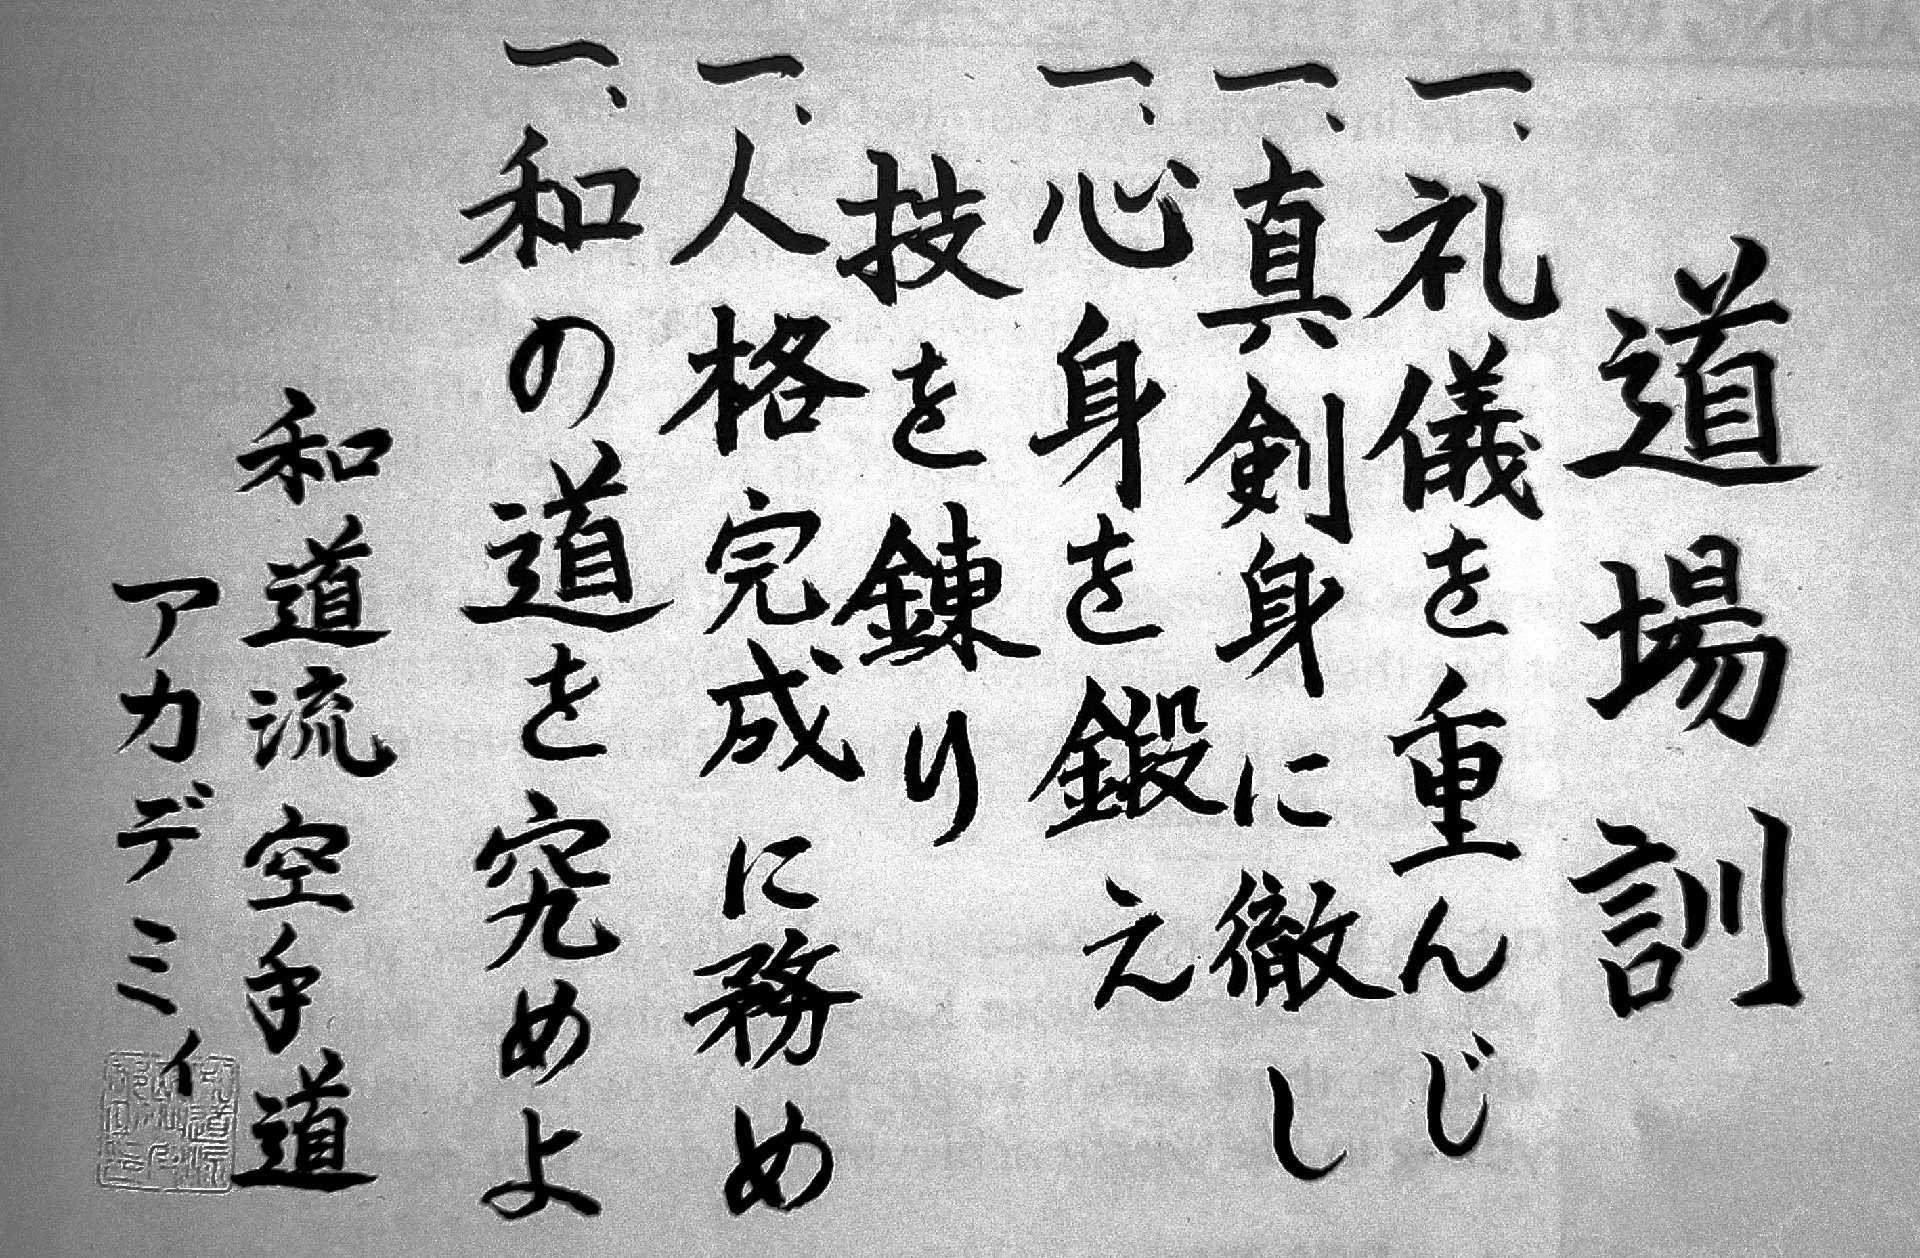 道場訓
一、礼儀を重んじ
一、真剣身に徹し
一、心身を鍛え
技を錬り
一、人格完成に務め
一、和の道を究めよ
和道流空手道
アカデミィ